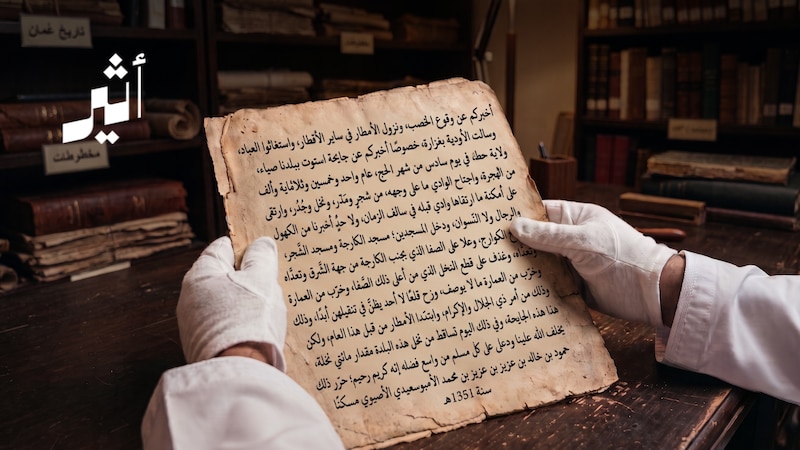 تاريخ عُمان
أثير
مخطوطات
أخبركم عن وقوع الخصب، ونزول الأمطار في ساير الأقطار، واستغاثوا العباد،
وسالت الأودية بغزارة، خصوصًا أخبركم عن جايحة استوت ببلدنا ضباء،
ولاية حطك في يوم سادس من شهر الحج، عام واحد وخمسين وثلاثماية وألف
من الهجرة، واجتاح الوادي ما على وجهه، من شجر ومَدَر، ونخل وجُدُر، وارتقى
على أمكنة ما ارتقاها وادي قبله في سالف الزمان، ولا حدٍ أخبرنا من الكهول
والرجال ولا النّسوان، ودخل المسجدين؛ مسجد الكارجة ومسجد الشَّجر،
الكوارج، وعلا على الصفا الذي بجنب الكارجة من جهة الشَّرق وتعدَّاه
وتعدّاه، وغذف على قطع النخل الذي من أعلى ذلك الصَّفا، وخرّب من العمارة
وخرّب من العمارة ما لا يوصف، وزح قلعًا لا أحد يظنّ في تنقيلهن أبدًا، وذلك
وذلك من أمر ذي الجلال والإكرام، وابتدتنا الأمطار من قبل هذا العام، ولكن
هذا هذه الجايحة، وفي ذلك اليوم تساقط من نخل هذه البلدة مقدار مائتي نخلة،
يخلف الله علينا ودعى على كل مسلم من واسع فضله إنه كريم رحيم؛ حرّر ذلك
حمود بن خالد بن عزيز بن عزيز بن محمد الأمبوسعيدي الأصيوي مسكنًا
سنة 1351هـ